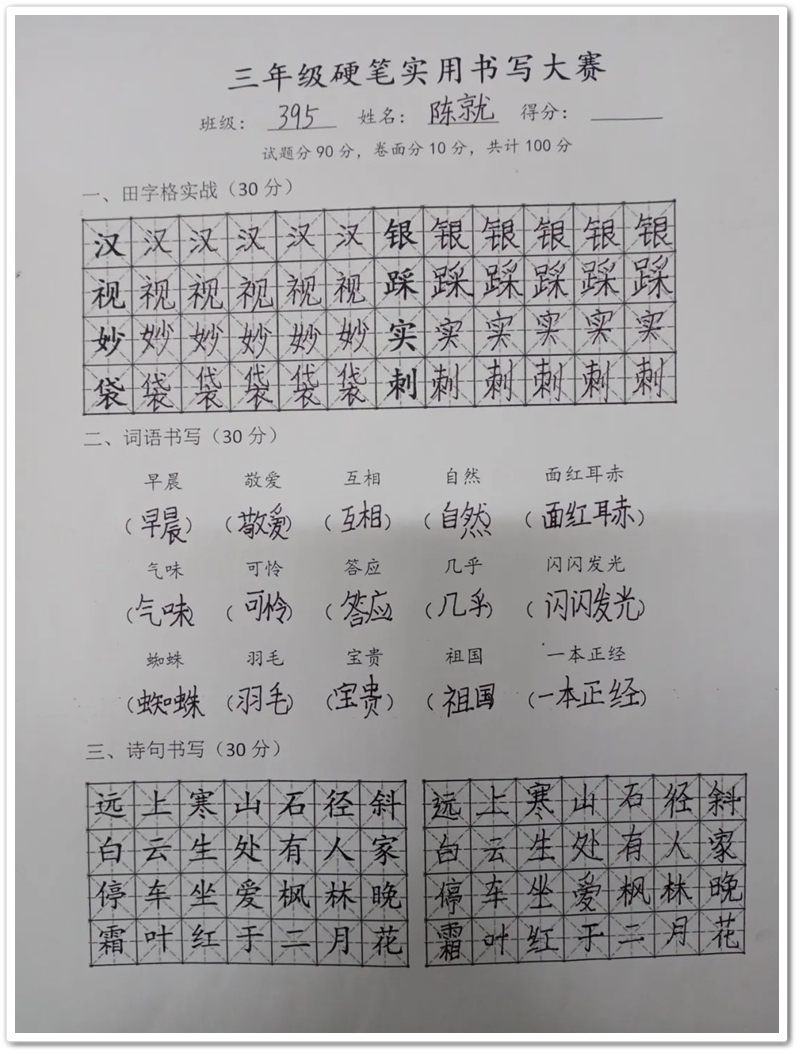 三年级硬笔实用书写大赛
班级： 395 姓名： 陈就 得分：
试题分 90 分，卷面分 10 分，共计 100 分
一、田字格实战（30 分）
汉汉汉汉汉汉银银银银银银
视视视视视视踩踩踩踩踩踩
妙妙妙妙妙妙实实实实实实
袋袋袋袋袋袋刺刺刺刺刺刺
二、词语书写（30 分）
早晨 敬爱 互相 自然 面红耳赤
（早晨）（敬爱）（互相）（自然）（面红耳赤）
气味 可怜 答应 几乎 闪闪发光
（气味）（可怜）（答应）（几乎）（闪闪发光）
蜘蛛 羽毛 宝贵 祖国 一本正经
（蜘蛛）（羽毛）（宝贵）（祖国）（一本正经）
三、诗句书写（30 分）
远上寒山石径斜 远上寒山石径斜
白云生处有人家 白云生处有人家
停车坐爱枫林晚 停车坐爱枫林晚
霜叶红于二月花 霜叶红于二月花